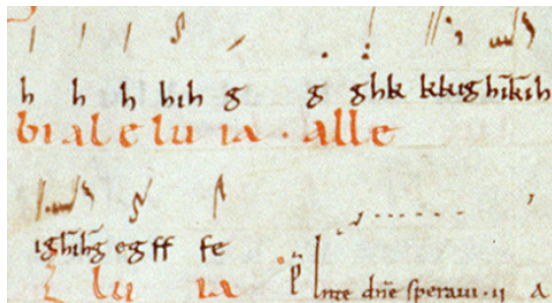 h h h hıh g g ghk kkıg hıkıh
bi al le lu ia · alle
ıghıhg eg ff fe
lu ia In te dn̄e speraui · ij